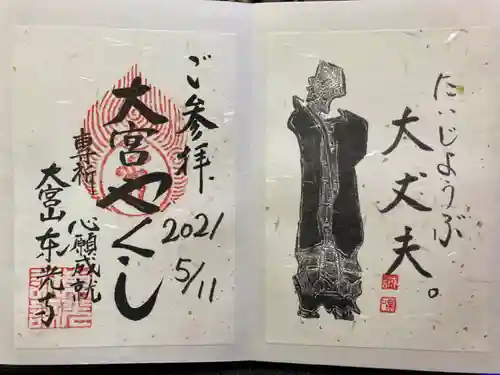 たいじようぶ
大丈夫。
ご参拝
2021
5/11
大宮やくし
専祈
心願成就
大宮山东光寺